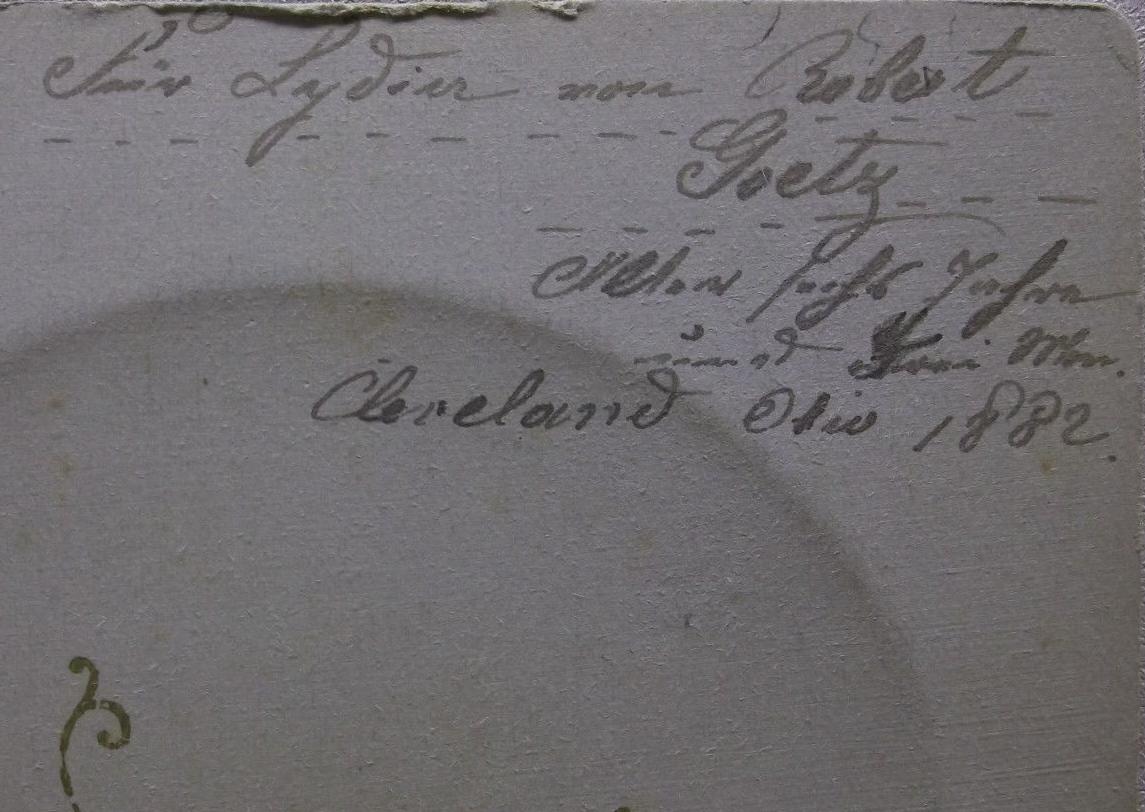 Für Lydia von Robert
Goetz
Alter sechs Jahre
und drei Mon.
Cleveland Ohio 1882.